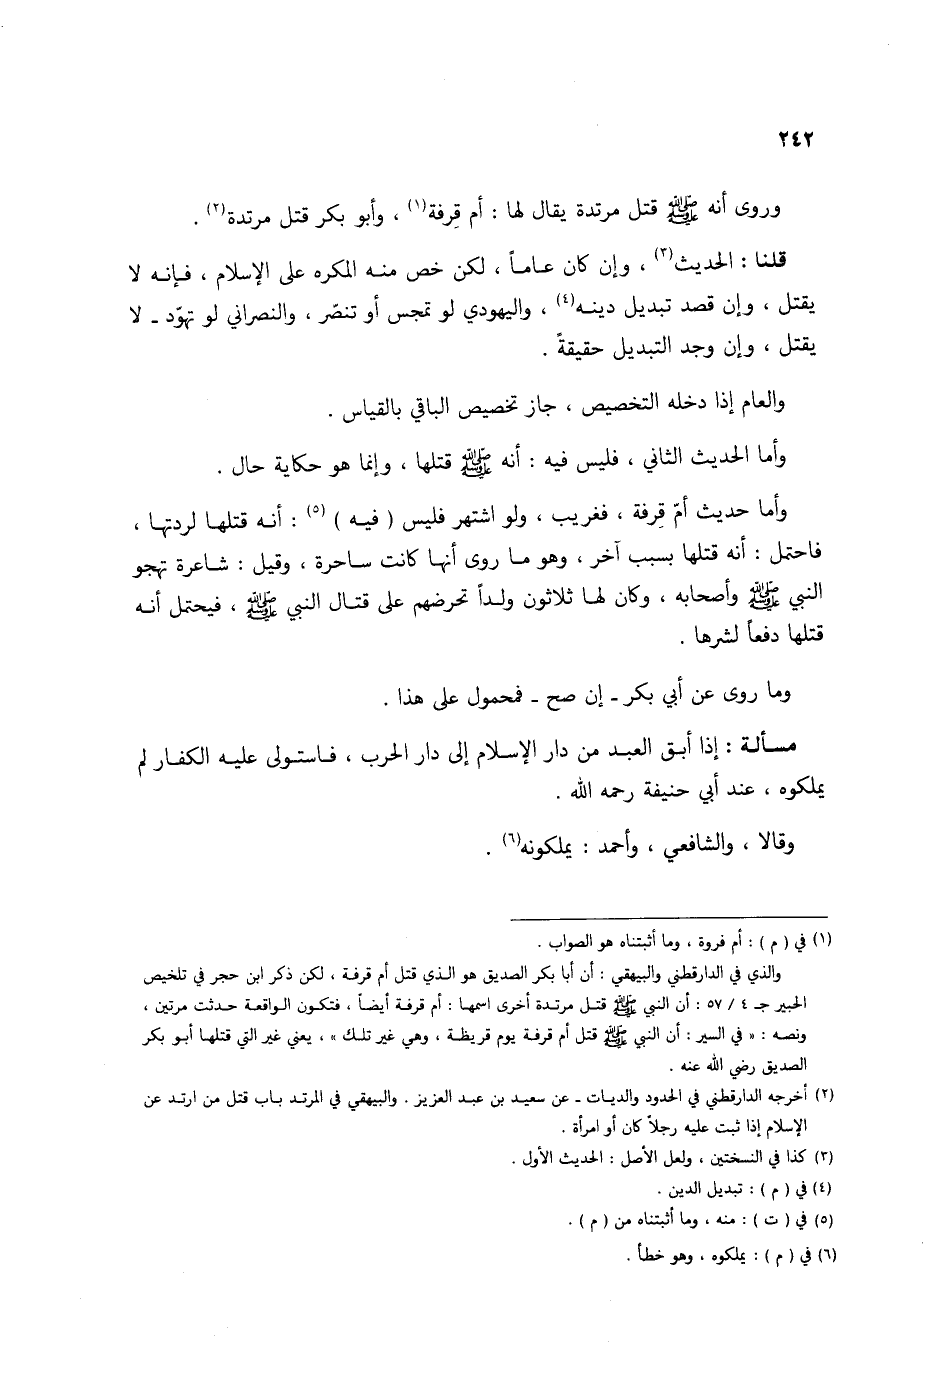 ٢٤٢
وروى أنه ﷺ قتل مرتدة يقال لها : أم قِرفة(١) ، وأبو بكر قتل مرتدة(٢) .
قلنا : الحديث(٣) ، وإن كان عاماً ، لكن خص منه المكره على الإسلام ، فإنه لا
يقتل ، وإن قصد تبديل دينه(٤) ، واليهودي لو تمجس أو تنصّر ، والنصراني لو تهوّد ـ لا
يقتل ، وإن وجد التبديل حقيقةً .
والعام إذا دخله التخصيص ، جاز تخصيص الباقي بالقياس .
وأما الحديث الثاني ، فليس فيه : أنه ﷺ قتلها ، وإنما هو حكاية حال .
وأما حديث أمّ قِرفة ، فغريب ، ولو اشتهر فليس ( فيه ) (٥) : أنه قتلها لردتها ،
فاحتمل : أنه قتلها بسبب آخر ، وهو ما روى أنها كانت ساحرة ، وقيل : شاعرة تهجو
النبي ﷺ وأصحابه ، وكان لها ثلاثون ولداً تحرضهم على قتال النبي ﷺ ، فيحتمل أنه
قتلها دفعاً لشرها .
وما روى عن أبي بكر ـ إن صح ـ فمحمول على هذا .
مسألة : إذا أبق العبد من دار الإسلام إلى دار الحرب ، فاستولى عليه الكفار لم
يملكوه ، عند أبي حنيفة رحمه الله .
وقالا ، والشافعي ، وأحمد : يملكونه(٦) .
(١) في ( م ) : أم فروة ، وما أثبتناه هو الصواب .
والذي في الدارقطني والبيهقي : أن أبا بكر الصديق هو الذي قتل أم قرفة ، لكن ذكر ابن حجر في تلخيص
الحبير جـ ٤ / ٥٧ : أن النبي ﷺ قتل مرتدة أخرى اسمها : أم قرفة أيضاً ، فتكون الواقعة حدثت مرتين ،
ونصه : « في السير : أن النبي ﷺ قتل أم قرفة يوم قريظة ، وهي غير تلك » ، يعني غير التي قتلها أبو بكر
الصديق رضي الله عنه .
(٢) أخرجه الدارقطني في الحدود والديات ـ عن سعيد بن عبد العزيز . والبيهقي في المرتد باب قتل من ارتد عن
الإسلام إذا ثبت عليه رجلاً كان أو امرأة .
(٣) كذا في النسختين ، ولعل الأصل : الحديث الأول .
(٤) في ( م ) : تبديل الدين .
(٥) في ( ت ) : منه ، وما أثبتناه من ( م ) .
(٦) في ( م ) : يملكوه ، وهو خطأ .